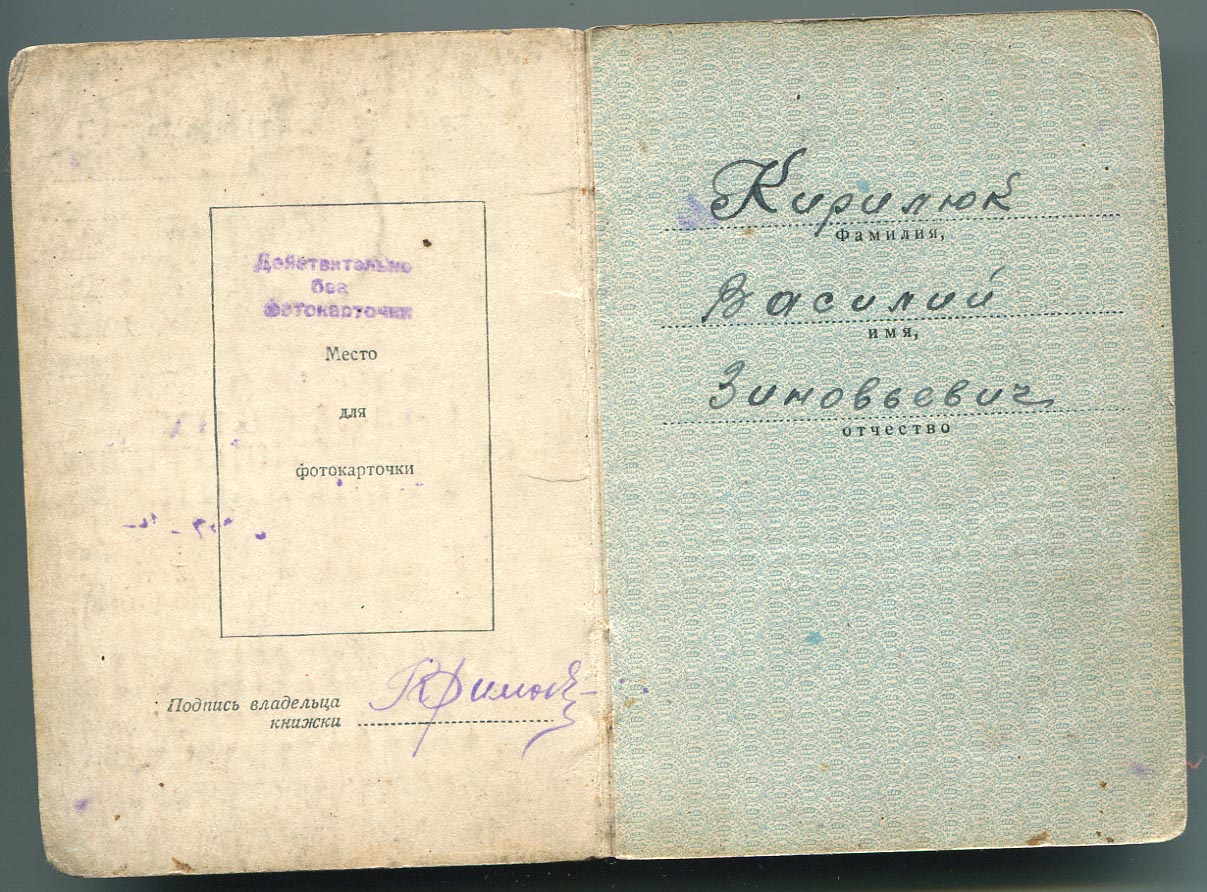 Действительно
без
фотокарточки
Место
для
фотокарточки
Подпись владельца
книжки
Кирилюк
Фамилия,
Василий
имя,
Зиновьевич
отчество